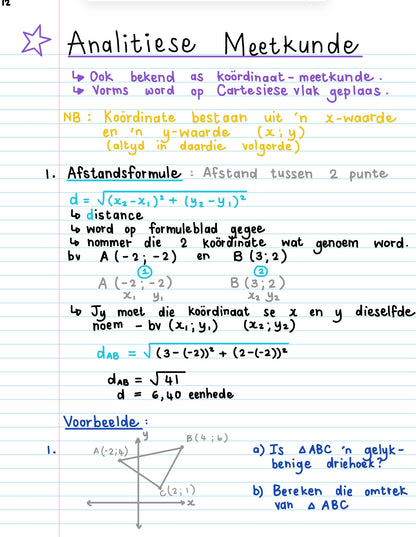 12
Analitiese Meetkunde
↳ Ook bekend as koördinaat-meetkunde.
↳ Vorms word op Cartesiese vlak geplaas.
NB: Koördinate bestaan uit 'n x-waarde
en 'n y-waarde (x;y)
(altyd in daardie volgorde)
1. Afstandsformule: Afstand tussen 2 punte
d = √(x₂-x₁)² + (y₂-y₁)²
↳ distance
↳ word op formuleblad gegee
↳ nommer die 2 koördinate wat genoem word.
bv A(-2;-2) en B(3;2)
① ②
A(-2;-2) B(3;2)
x₁ y₁ x₂ y₂
↳ Jy moet die koördinaat se x en y dieselfde
noem - bv (x₁;y₁) (x₂;y₂)
dAB = √(3-(-2))² + (2-(-2))²
dAB = √41
d = 6,40 eenhede
Voorbeelde:
1.
y
A(-2;4)
B(4;6)
C(2;1)
x
a) Is △ABC 'n gelyk-
benige driehoek?
b) Bereken die omtrek
van △ABC